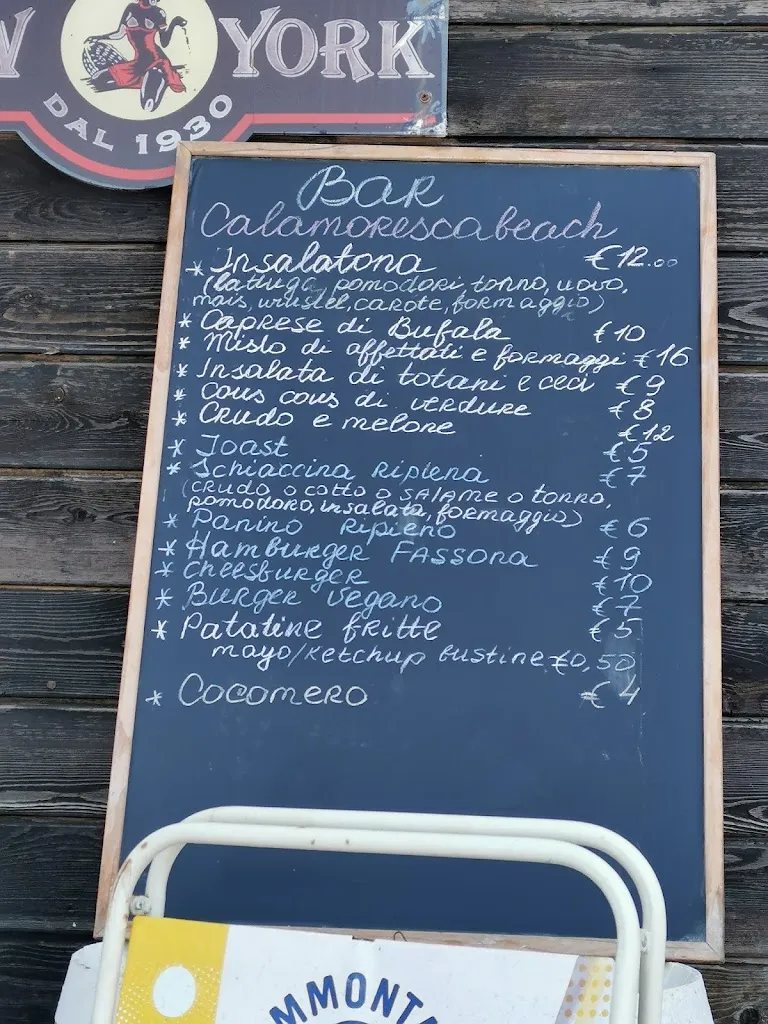 YORK
DAL 1930
BAR
Calamorescabeach
* Insalatona €12.00
(lattuga, pomodori, tonno, uovo,
mais, wrustel, carote, formaggio)
* Caprese di Bufala €10
* Misto di affettati e formaggi €16
* Insalata di totani e ceci €9
* Cous cous di verdure €8
* Crudo e melone €12
* Toast €5
* Schiaccina Ripiena €7
(CRUDO o cotto o SALAME o tonno,
pomodoro, insalata, formaggio)
* Panino Ripieno €6
* Hamburger FASSONA €9
* Cheesburger €10
* Burger vegano €7
* Patatine fritte €5
mayo/Ketchup bustine €0,50
* COCOMERO €4